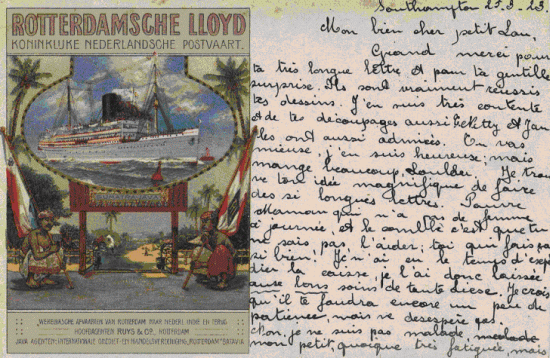 ROTTERDAMSCHE LLOYD
KONINKLIJKE NEDERLANDSCHE POSTVAART.
WEKELIJKSCHE AFVAARTEN VAN ROTTERDAM NAAR NEDERL INDIE EN TERUG
HOOFDAGENTEN RUYS & Co, ROTTERDAM
JAVA AGENTEN: INTERNATIONALE CREDIET- EN HANDELSVEREENIGING "ROTTERDAM" BATAVIA
Southampton 25.3-23
Mon bien cher petit Lou,
Grand merci pour
ta très longue lettre et pour ta gentille
surprise. Ils sont vraiment réussis
tes dessins. J'en suis très contente
et de tes découpages aussi Ketty et Jan
les ont aussi admirés. Tu vas
mieux, j'en suis heureuse, mais
mange beaucoup, Je
ne ton idée magnifique de faire
des si longues lettres. Pauvre
Maman qui n'a pas de femme
à journée, et il semble c'est que tu
ne sais pas l'aider, toi qui fais
si bien. Je n'ai eu le temps d'
la caisse, je l'ai donc laissée
aux bons soins de tante Je crois
qu'il te faudra encore un peu de
patience, mais ne désespère pas.
Non, je ne suis pas malade
mon petit, quoique très fatiguée, mais